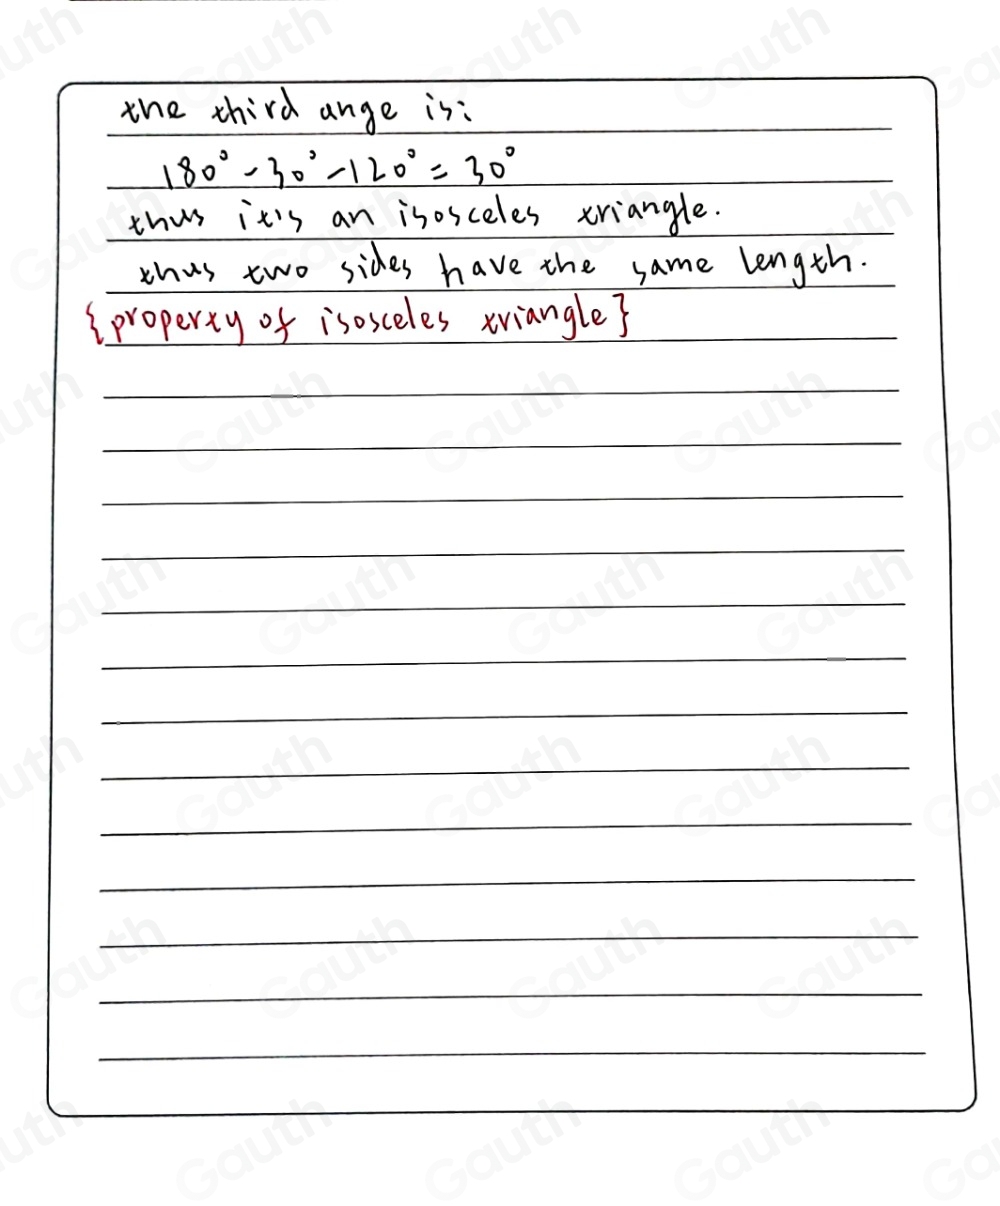 the third ange is:
180° - 30° - 120° = 30°
thus it's an isosceles triangle.
thus two sides have the same length.
{property of isosceles triangle}